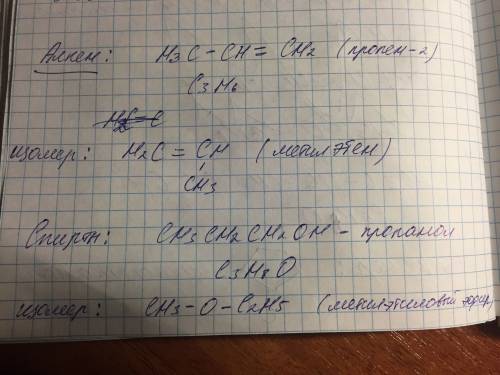 Алкен: H3C-CH=CH2 (пропен-2)
C3H6
изомер: H2C=CH (метилэтен)
CH3
Спирты: CH3CH2CH2OH - пропанол
C3H8O
изомер: CH3-O-C2H5 (метилэтиловый эфир)